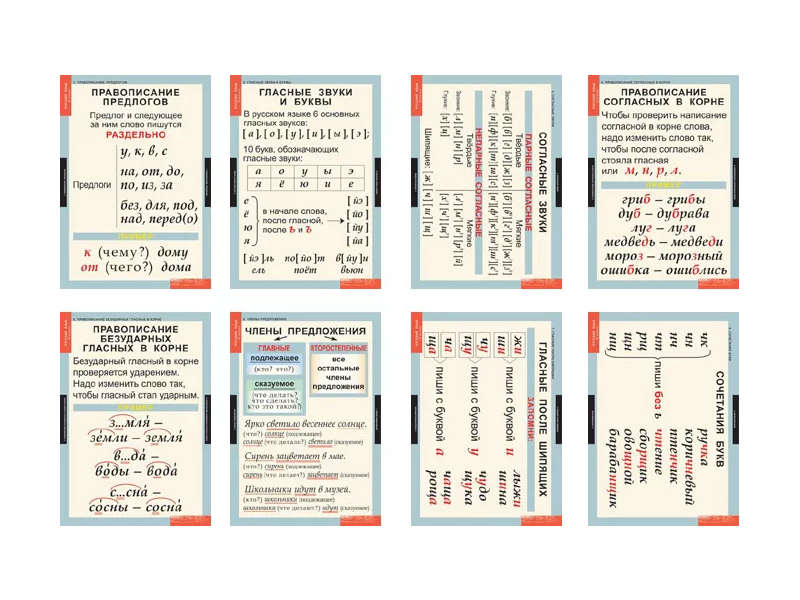 ПРАВОПИСАНИЕ
ПРЕДЛОГОВ
Предлог и следующее
за ним слово пишутся
РАЗДЕЛЬНО
у, к, в, с
на, от, до,
Предлоги
по, из, за
без, для, под,
над, перед(о)
к (чему?) дому
от (чего?) дома
ГЛАСНЫЕ ЗВУКИ
И БУКВЫ
В русском языке 6 основных
гласных звуков:
[а], [о], [у], [и], [ы], [э];
10 букв, обозначающих
гласные звуки:
а о у ы э
я ё ю и е
е [йэ]
ё в начале слова, [йо]
ю после гласной, [йу]
я после ь и ъ [йа]
[йэ]ль по[йо]т в[йу]н
ель поёт вьюн
СОГЛАСНЫЕ ЗВУКИ
ПАРНЫЕ СОГЛАСНЫЕ
Твёрдые Мягкие
Звонкие: [б] [в] [г] [д] [ж] [з] [б'] [в'] [г'] [д'] [з']
Глухие: [п] [ф] [к] [т] [ш] [с] [п'] [ф'] [к'] [т'] [с']
НЕПАРНЫЕ СОГЛАСНЫЕ
Твёрдые Мягкие
Звонкие: [л] [м] [н] [р] [л'] [м'] [н'] [р'] [й]
Глухие: [х] [ц] [х'] [ч'] [щ']
Шипящие: [ж] [ч] [ш] [щ]
ПРАВОПИСАНИЕ
СОГЛАСНЫХ В КОРНЕ
Чтобы проверить написание
согласной в корне слова,
надо изменить слово так,
чтобы после согласной
стояла гласная
или м, н, р, л.
гриб – грибы
дуб – дубрава
луг – луга
медведь – медведи
мороз – морозный
ошибка – ошиблись
ПРАВОПИСАНИЕ
БЕЗУДАРНЫХ
ГЛАСНЫХ В КОРНЕ
Безударный гласный в корне
проверяется ударением.
Надо изменить слово так,
чтобы гласный стал ударным.
з...мля́ –
зе́мли – земля́
в...да́ –
во́ды – вода́
с...сна́ –
со́сны – сосна́
ЧЛЕНЫ ПРЕДЛОЖЕНИЯ
ГЛАВНЫЕ
подлежащее
(кто? что?)
сказуемое
(что делать?
что сделать?
кто это такой?)
ВТОРОСТЕПЕННЫЕ
все
остальные
члены
предложения
Ярко светило весеннее солнце.
(что?) солнце (подлежащее)
солнце (что делало?) светило (сказуемое)
Сирень зацветает в мае.
(что?) сирень (подлежащее)
сирень (что делает?) зацветает (сказуемое)
Школьники идут в музей.
(кто?) школьники (подлежащее)
школьники (что делают?) идут (сказуемое)
ГЛАСНЫЕ ПОСЛЕ ШИПЯЩИХ
ЗАПОМНИ:
жи лыжи
ши пиши с буквой и шина
чу чудо
щу пиши с буквой у щука
ча чаща
ща пиши с буквой а роща
СОЧЕТАНИЯ БУКВ
чк ручка
чн коричневый
нч птенчик
чт пиши без ь чтение
рщ сборщик
щн овощной
нщ барабанщик